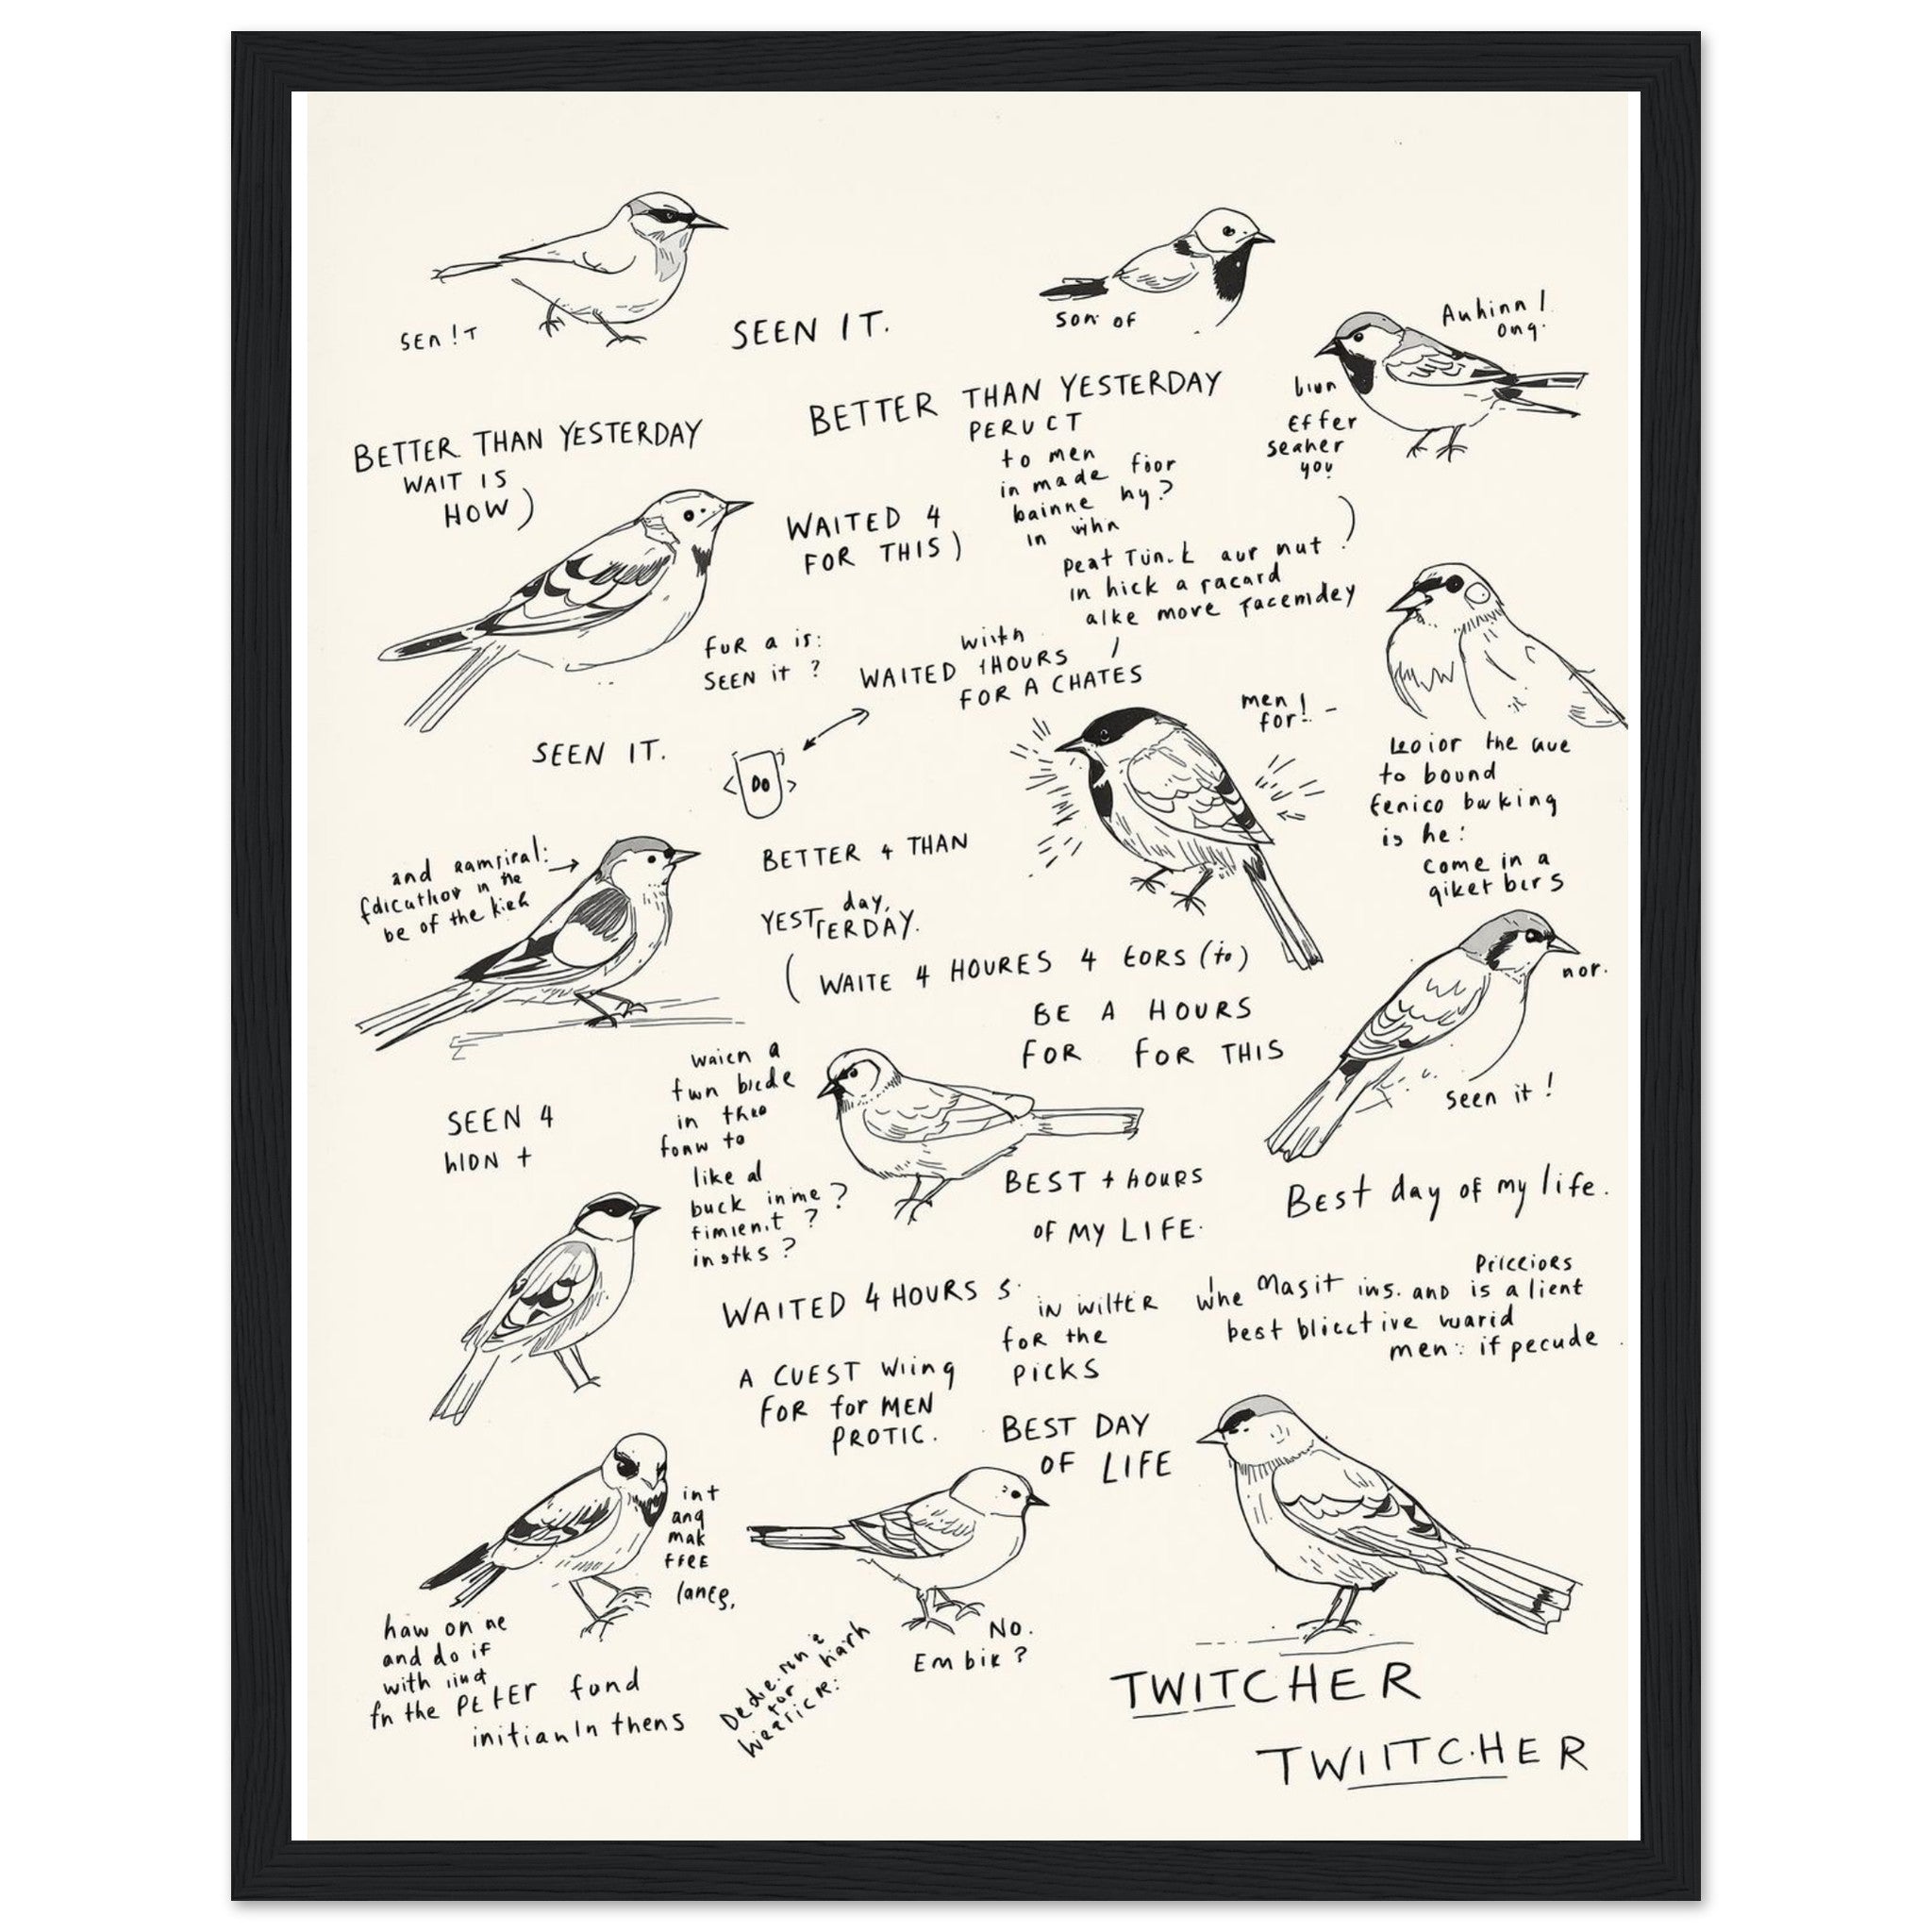 sen!t
SEEN IT.
son of
Auhinn!
ong.
BETTER THAN YESTERDAY
WAIT IS
HOW)
BETTER THAN YESTERDAY
PERUCT
to men
in made fior
bainne hy?
in whn
liun
Effer
seaher
you
WAITED 4
FOR THIS)
peat Tun.t aur nut
in hick a racard
alke more Tacemdey
FUR a is:
SEEN it ?
with
WAITED 1HOURS
FOR A CHATES
men!
for!
SEEN IT.
DO
Leoior the aue
to bound
Eenico barking
is he:
come in a
giket bers
and ramsiral:
fdicathor in the
be of the kieh
BETTER 4 THAN
day,
YESTTERDAY.
(WAITE 4 HOURES 4 EORS (to)
BE A HOURS
FOR FOR THIS
nor.
seen it!
SEEN 4
hION +
waien a
fwn birde
in thro
fonw to
like al
buck inme ?
fimient ?
inotks ?
BEST + hOURS
OF MY LIFE.
Best day of my life.
WAITED 4 HOURS S.
IN WILTER
for the
PICKS
Pricciors
whe Masit ins. and is a lient
best blicctive warid
men: if pecude
A CUEST Wiing
FOR for MEN
PROTIC.
BEST DAY
OF LIFE
int
ang
mak
FFEE
lances,
haw on ne
and do if
with iind
fn the PETER fond
initianIn thens
No.
Embik ?
TWITCHER
TWIITC.HER